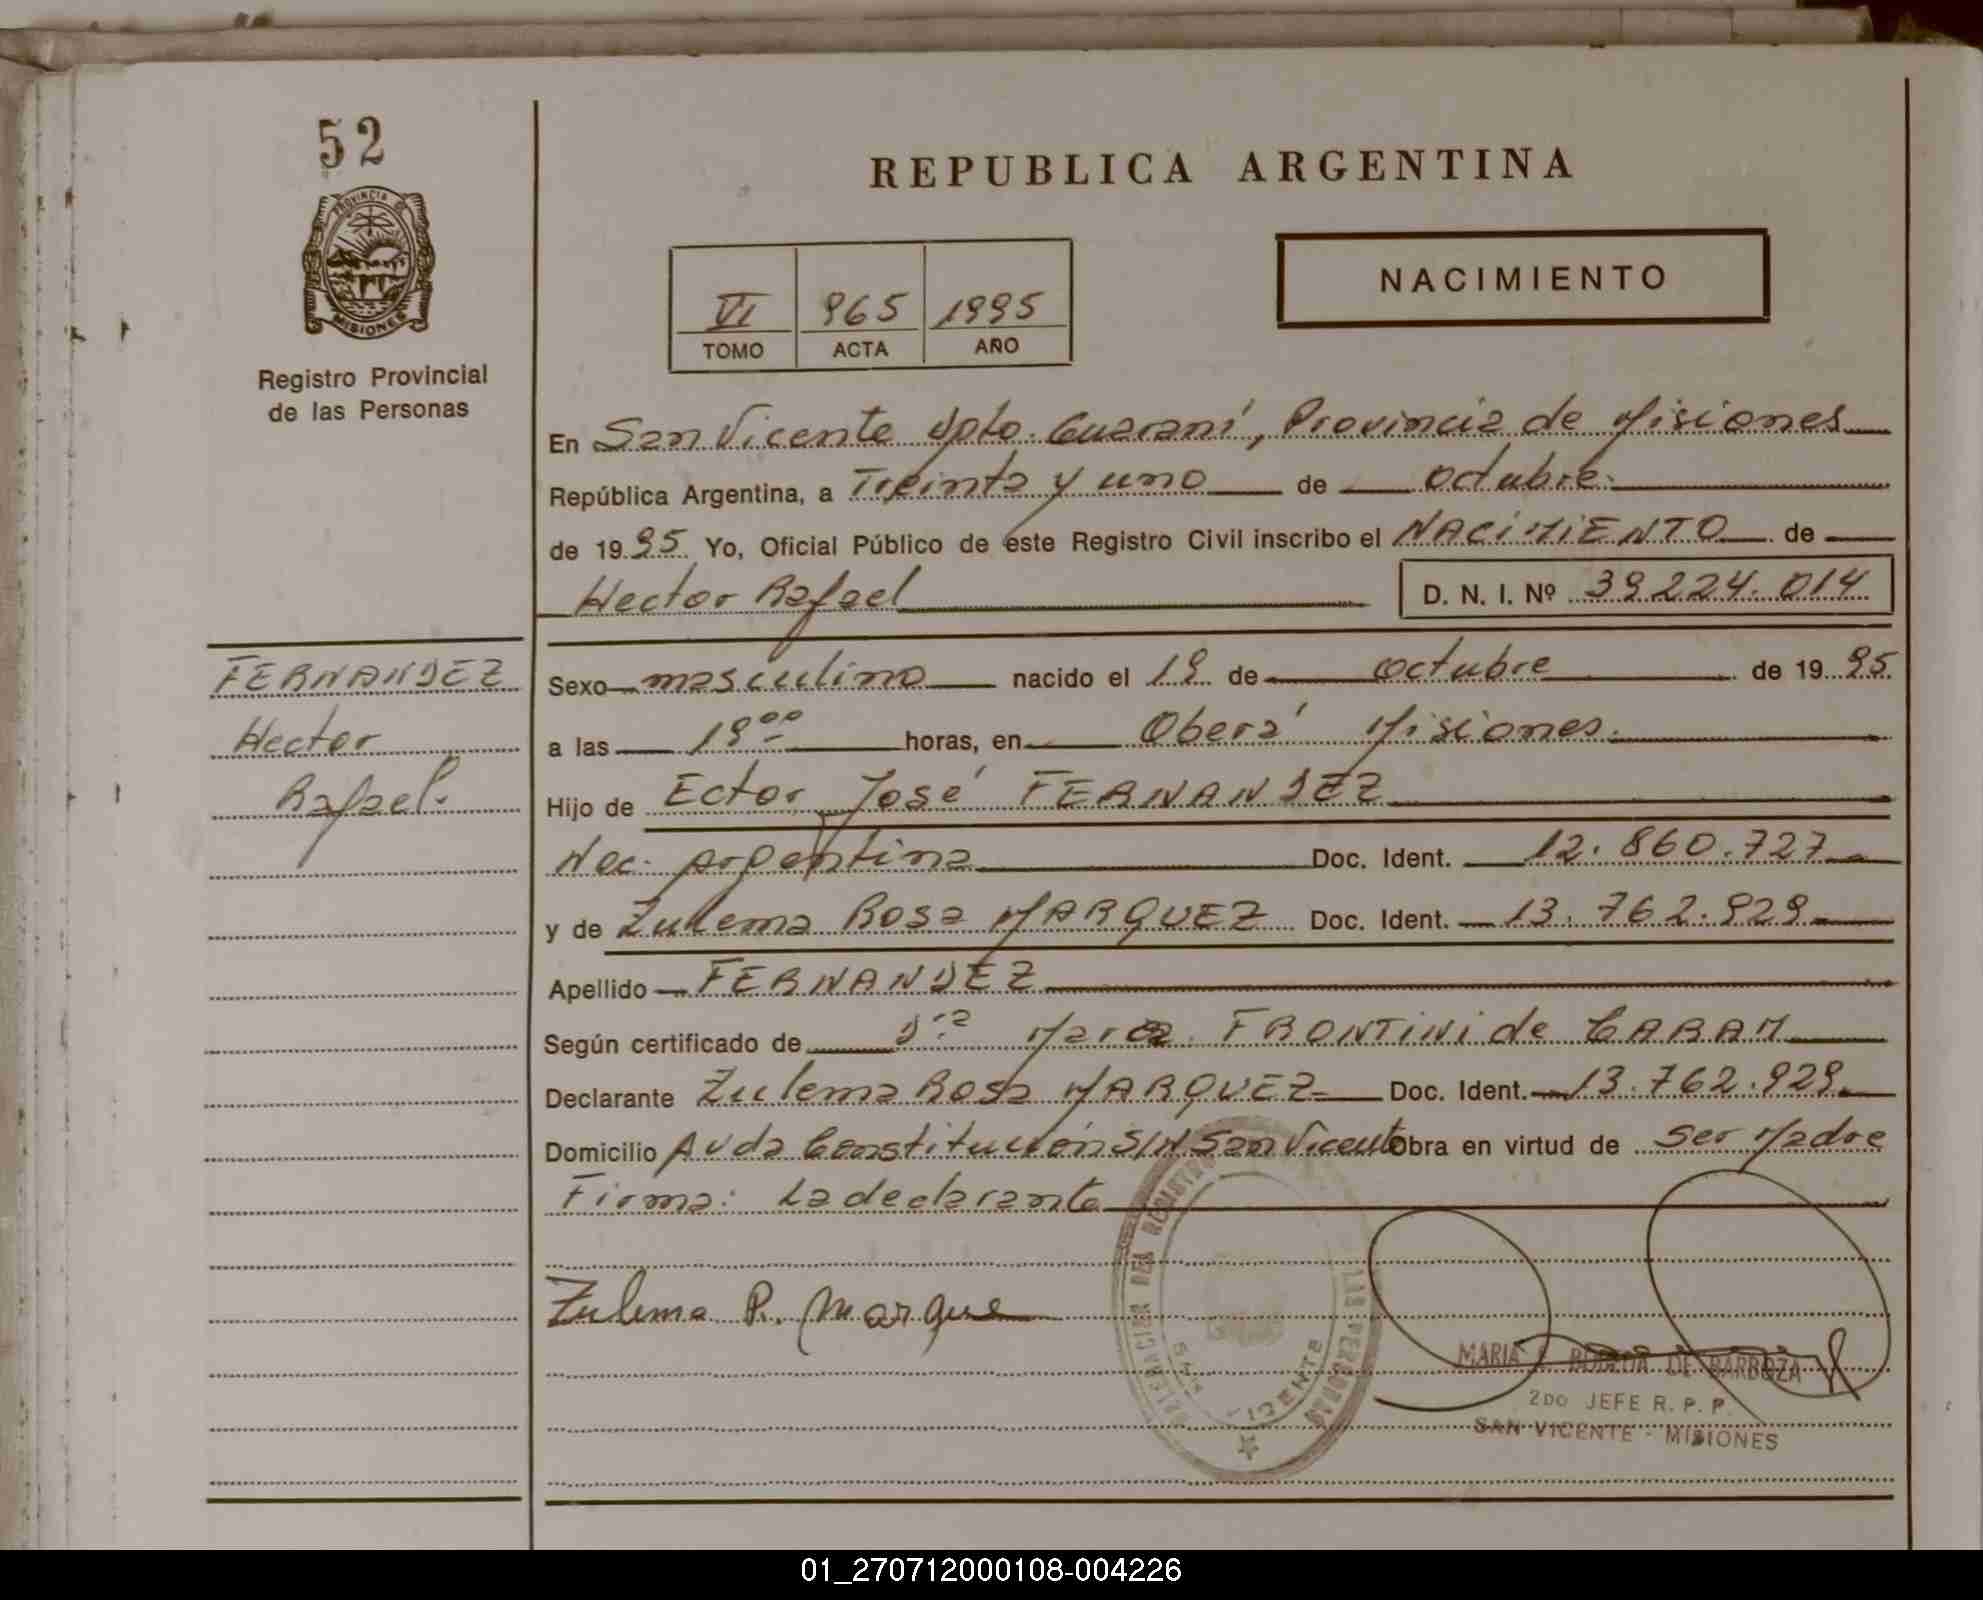 52
PROVINCIA DE
MISIONES
Registro Provincial
de las Personas
REPUBLICA ARGENTINA
NACIMIENTO
VI 965 1995
TOMO ACTA AÑO
En San Vicente Dpto. Guaraní, Provincia de Misiones
República Argentina, a Treinta y uno de octubre.
de 1995 Yo, Oficial Público de este Registro Civil inscribo el NACIMIENTO de
Hector Rafael D. N. I. Nº 39.224.014
FERNANDEZ
Hector
Rafael.
Sexo masculino nacido el 19 de octubre de 1995.
a las 19 00 horas, en Oberá Misiones.
Hijo de Ector José FERNANDEZ
Nac. argentina Doc. Ident. 12.860.727
y de Zulema Rosa MARQUEZ Doc. Ident. 13.762.929
Apellido FERNANDEZ
Según certificado de Dra FRONTINI de CARAM
Declarante Zulema Rosa MARQUEZ Doc. Ident. 13.762.929
Domicilio Avda Constitución S/N San Vicente Obra en virtud de ser Madre
Firma: La declarante
Zulema R. Marque
DELEGACION DEL REGISTRO LAS PERSONAS
SAN VICENTE
MARIA DE BARBOZA
2DO JEFE R. P. P.
SAN VICENTE - MISIONES
01_270712000108-004226